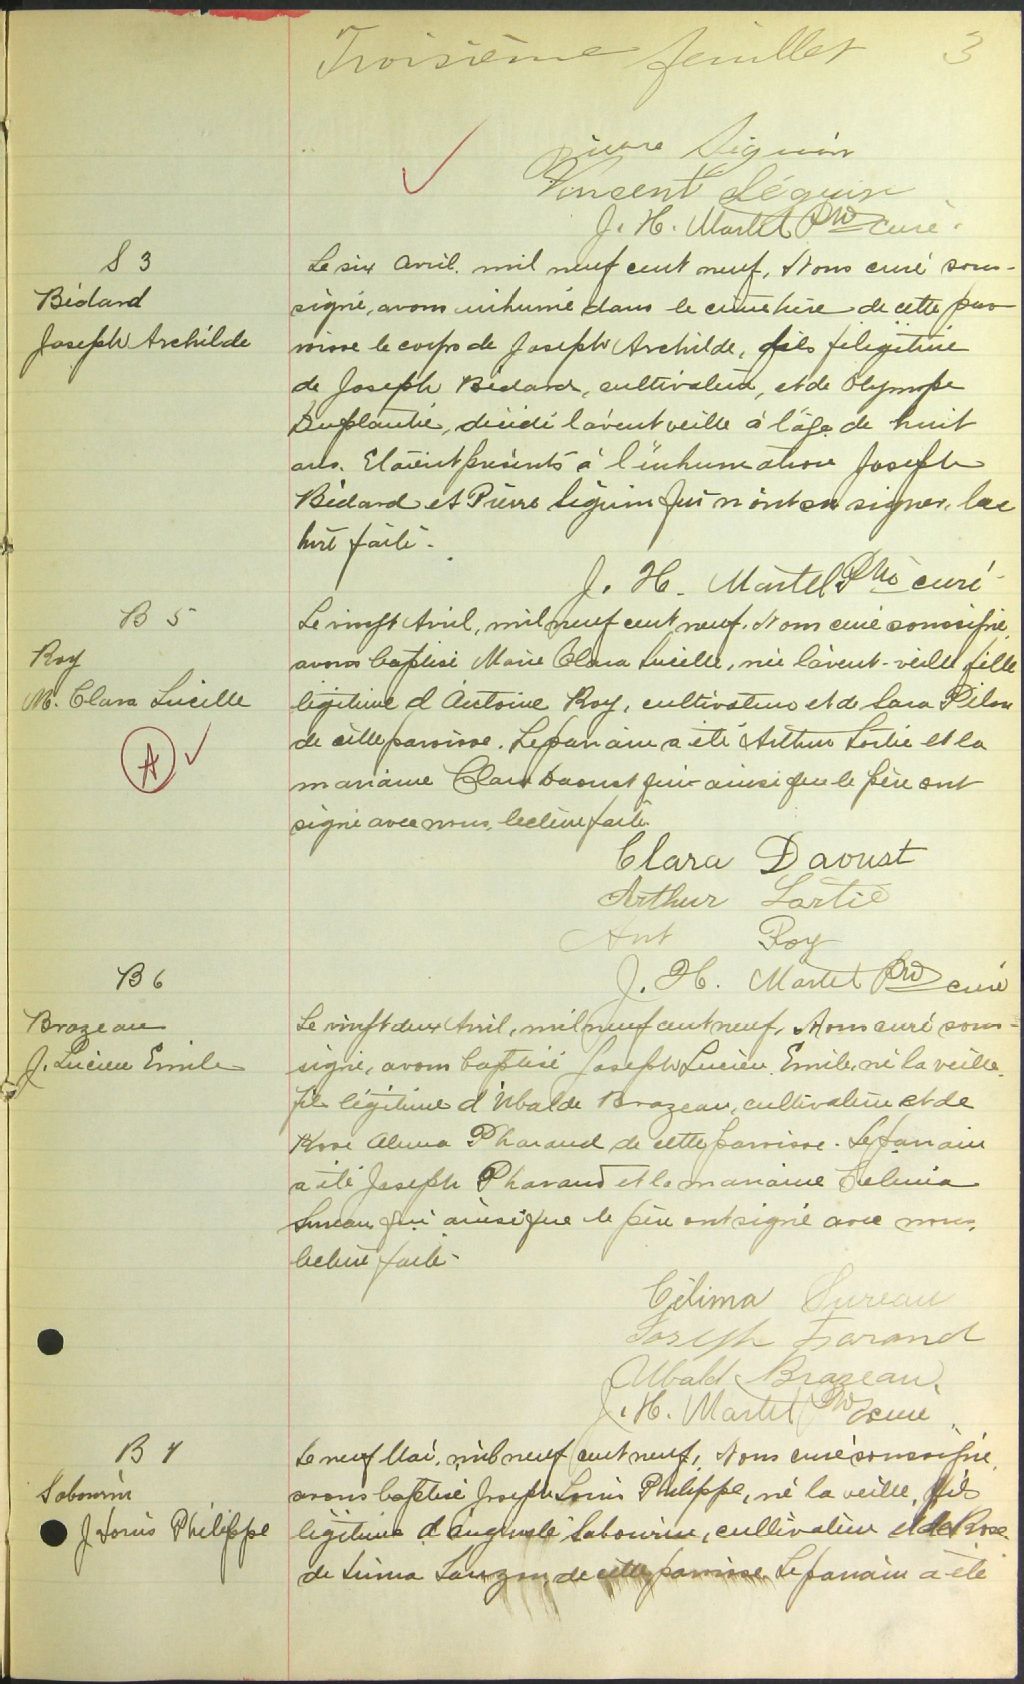 Troisième feuillet 3
Pierre Siguin
Vincent Séguin
J. H. Martel Ptre curé.
S 3
Bédard
Joseph Archilde
Le six avril mil neuf cent neuf, Nous curé sous-
signé, avons inhumé dans le cimetière de cette pa-
roisse le corps de Joseph Archilde, fils légitime
de Joseph Bédard, cultivateur, et de Olympe
décédé l'avent veille à l'âge de huit
ans. Etaient présents à l'inhumation Joseph
Bédard et Pierre Séguin qui n'ont su signer. lec
ture faite.
J. H. Martel Ptre curé
B 5
Roy
M. Clara Lucille
A
Le vingt Avril, mil neuf cent neuf. Nous curé soussigné
avons baptisé Marie Clara Lucille, née l'avent-veille fille
légitime d'Antoine Roy, cultivateur et de Sara Pilon
de cette paroisse. Le parrain a été Arthur Lortie et la
marraine Clara Daoust qui ainsi que le père ont
signé avec nous, lecture faite.
Clara Daoust
Arthur Lortie
Ant Roy
J. H. Martel Ptre curé
B 6
Brazeau
J. Lucien Emile
Le vingt deux Avril, mil neuf cent neuf, Nous curé sous-
signé, avons baptisé Joseph Lucien Emile, né la veille,
fils légitime d'Ubalde Brazeau, cultivateur et de
Rose Alma Pharand de cette paroisse. Le parrain
a été Joseph Pharand et la marraine Celima
Sureau qui ainsi que le père ont signé avec nous,
lecture faite.
Célima Sureau
Joseph Farand
Ubald Brazeau.
J. H. Martel Ptre curé.
B 7
Sabourin
J Louis Philippe
Le neuf Mai, mil neuf cent neuf, Nous curé soussigné,
avons baptisé Joseph Louis Philippe, né la veille, fils
légitime d'Auguste Sabourin, cultivateur et de Rose
de Lima Lauzon, de cette paroisse Le parrain a été